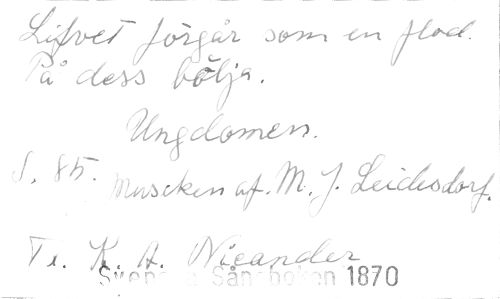 Lifvet förgår som en flod.
På dess bölja.
Ungdomen.
S. 85.
Musiken af M. J. Leidesdorf.
Tr. K. A. Nicander
Svenska Sångboken 1870